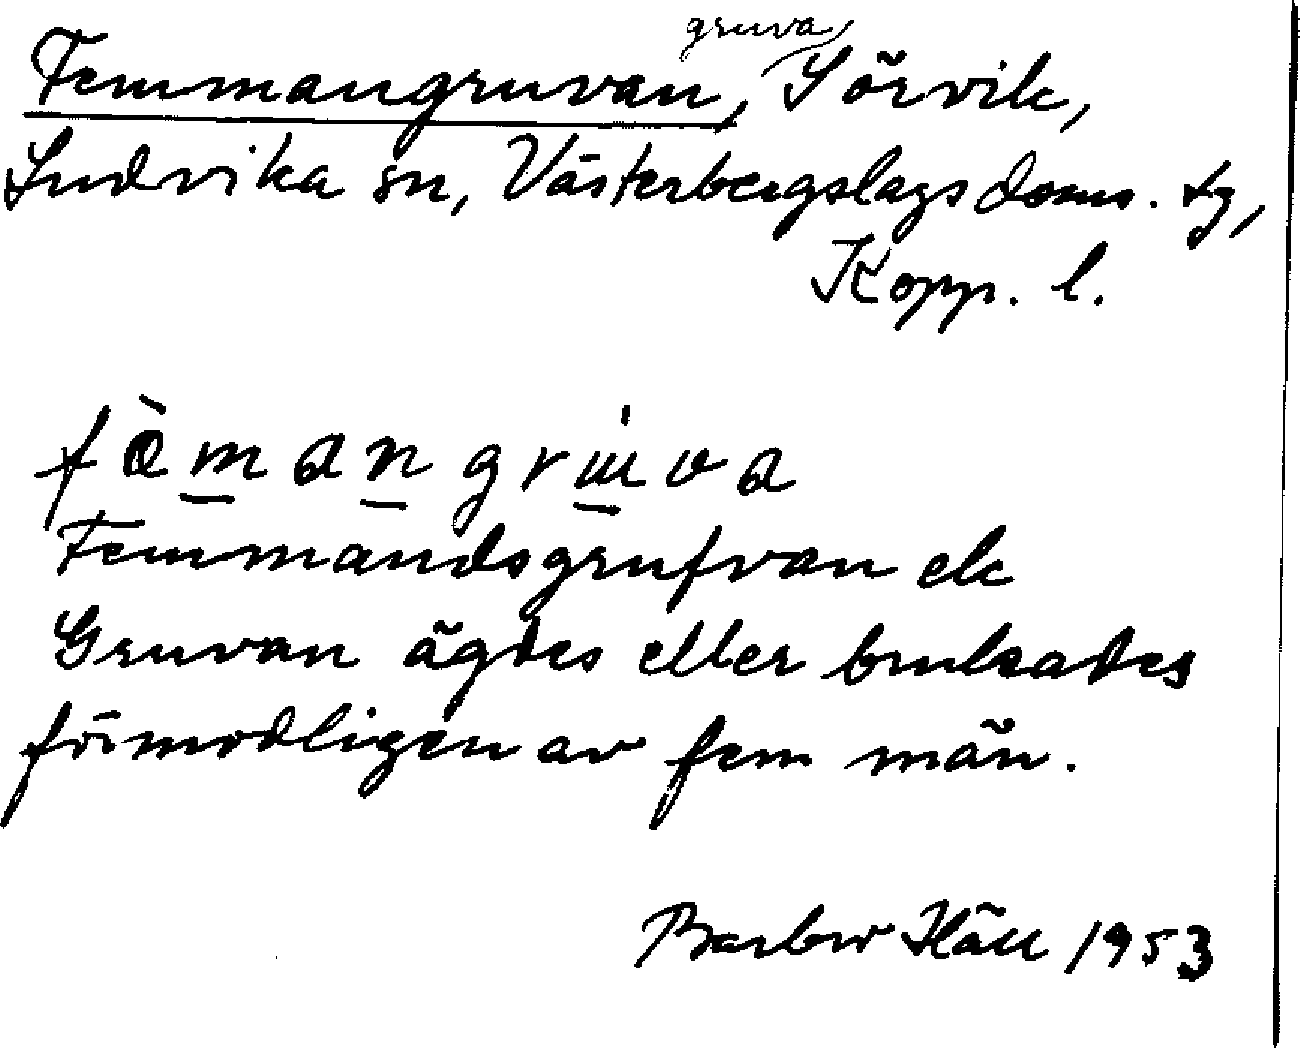 gruva
Femmangruvan, Sörvik,
Ludvika sn, Västerbergslags doms. tg,
Kopp. l.
fò̱mangru̇va
Femmandsgrufvan ek
Gruvan ägdes eller brukades
förmodligen av fem män.
Barbro Häll 1953